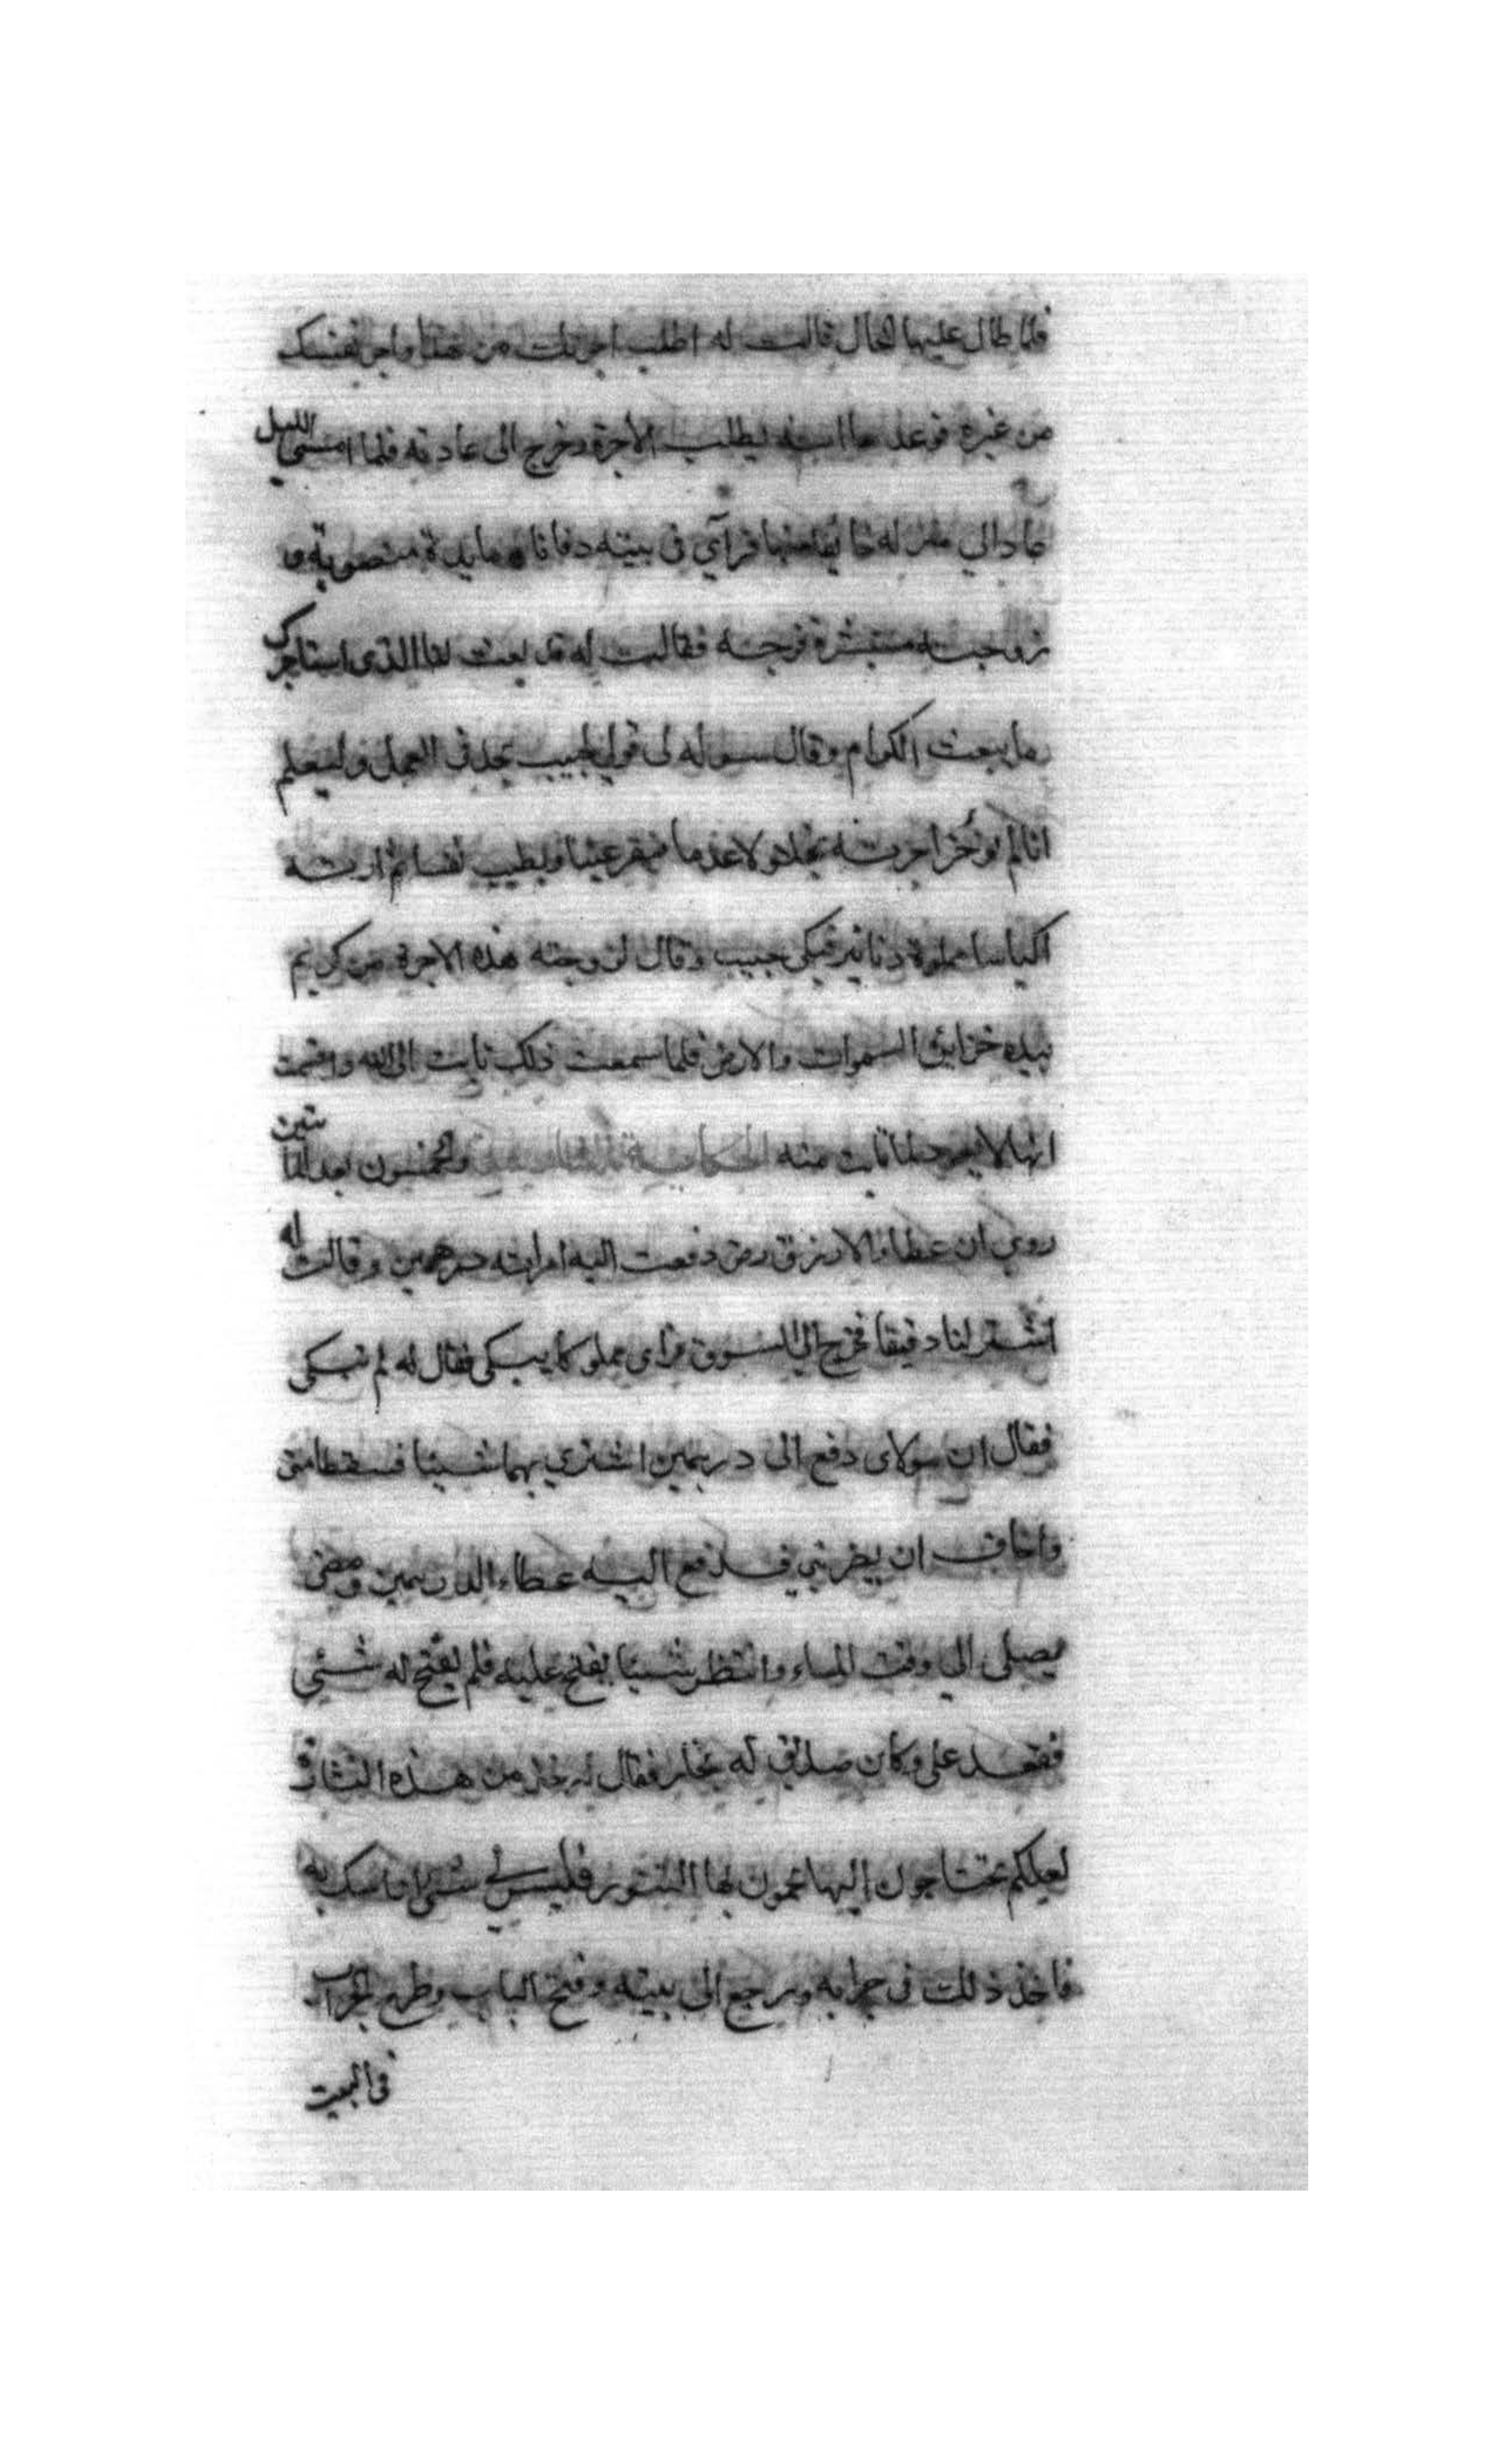 فلما طال عليها الحال قالت له اطلب اجرتك من هذا واجر نفسك
من غيره فوعدها انه يطلب الاجرة وخرج الى عادته فلما امسى الليل
عاد الي منزله خايفا منها فرآي في بيته دخانا و مايدة منصوبة و
زوجته مستبشرة فرحنه فقالت له قد بعث لنا الذى استاجرك
ما يبعث الكرام وقال رسوله لى قولي لحبيب يجد في العمل وليعلم
انا لم نوخر اجرته بخلا ولا عدما فيقر عينا ويطيب نفسا ثم ارته
اكياسا مملوة دنانير فبكى حبيب وقال لزوجته هذه الاجرة من كريم
بيده خزاين السموات والارض فلما سمعت ذلك تابت الى الله واقسمت
انها لا تعود لما تابت منه الحكاية والخمسون بعد المأتين
روي ان عطاء الازرق رض دفعت اليه امراته درهمين وقالت له
اشتر لنا دقيقا فخرج الي السوق فراى مملوكا يبكى فقال له لم تبكى
فقال ان مولاى دفع الى درهمين اشتري بهما شيئا فسقطا منى
واخاف ان يضربني فدفع اليه عطاء الدرهمين ومضى
يصلى الي وقت المساء وانتظر شيئا يفتح عليه فلم يفتح له شئي
فقعد على دكان صديق له نجار فقال له خذ من هذه النشارة
لعلكم تحتاجون اليها تحمون بها التنور فليس لي شئي اواسيك به
فاخذ ذلك في جرابه ورجع الى بيته وفتح الباب وطرح الجراب
في البيت